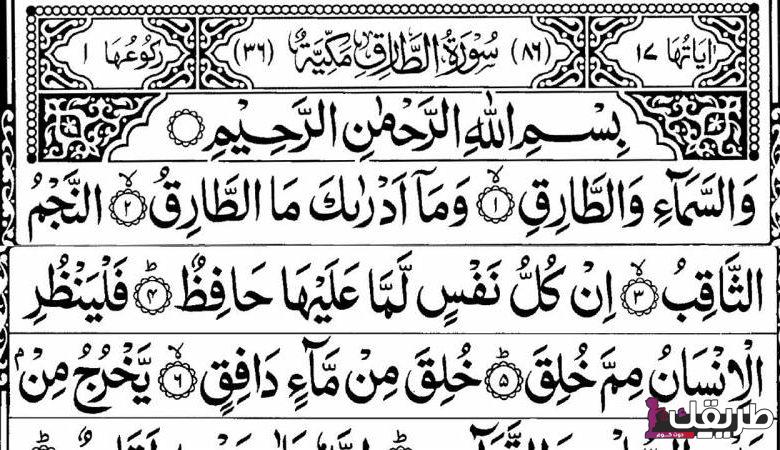 اٰيَاتُهَا ١٧ (٨٦) سُوْرَةُ الطَّارِقِ مَكِّيَّةٌ (٣٦) رُكُوْعُهَا ١
بِسْمِ اللّٰهِ الرَّحْمٰنِ الرَّحِيْمِ
وَالسَّمَآءِ وَالطَّارِقِ ۙ﴿١﴾ وَمَآ اَدْرٰىكَ مَا الطَّارِقُ ۙ﴿٢﴾ النَّجْمُ
الثَّاقِبُ ۙ﴿٣﴾ اِنْ كُلُّ نَفْسٍ لَّمَّا عَلَيْهَا حَافِظٌ ؕ﴿٤﴾ فَلْيَنْظُرِ
الْاِنْسَانُ مِمَّ خُلِقَ ؕ﴿٥﴾ خُلِقَ مِنْ مَّآءٍ دَافِقٍ ۙ﴿٦﴾ يَّخْرُجُ مِنْۢ
طريقك
دوت كوم